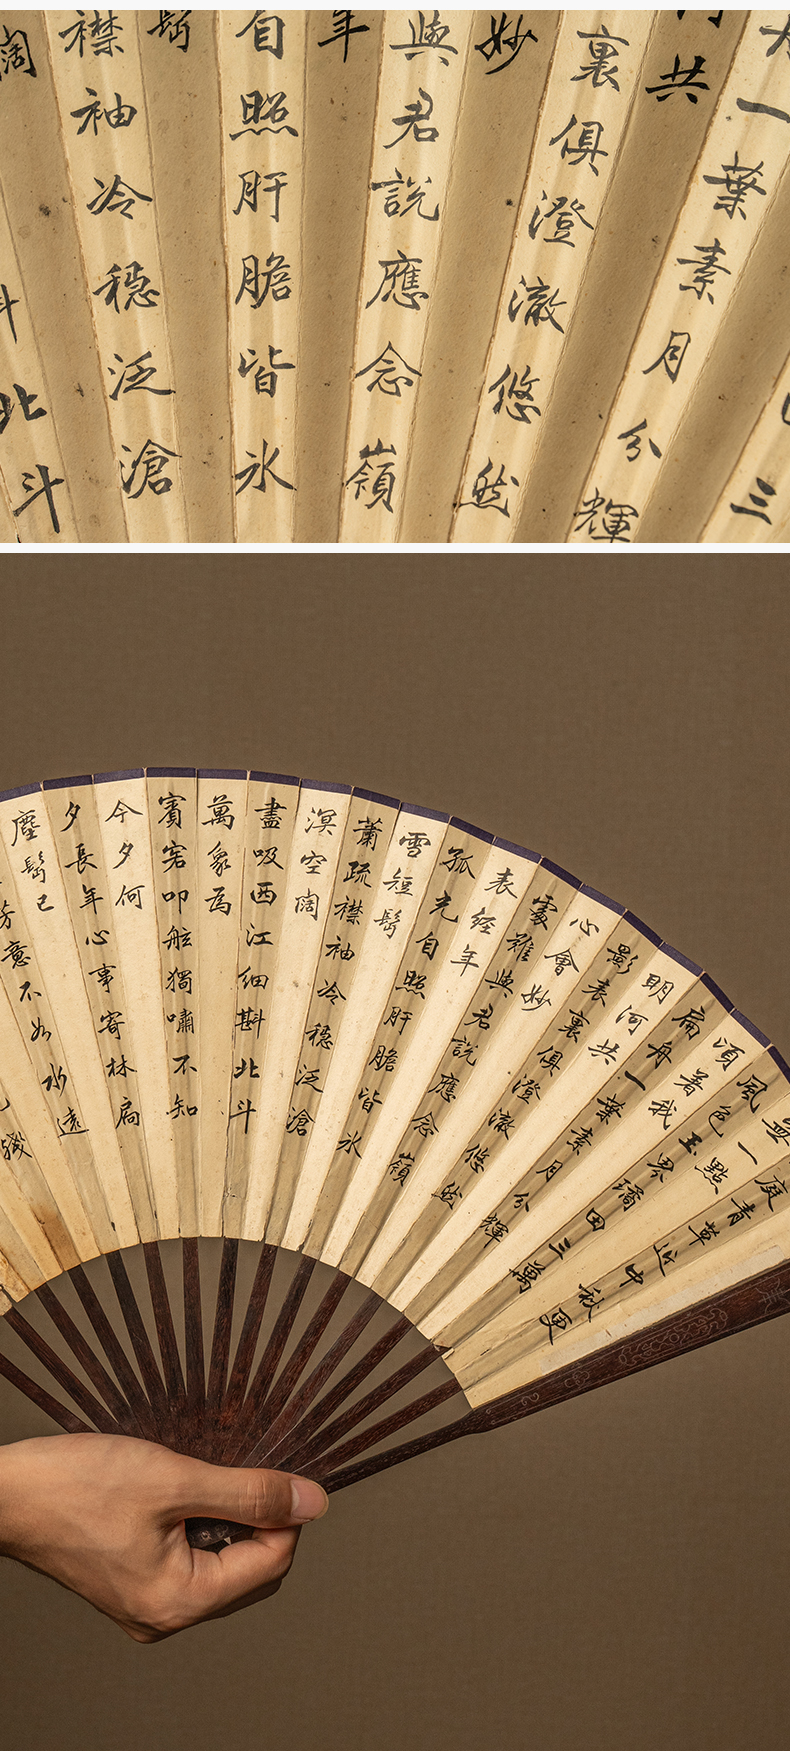 三
一葉素月分輝
共
裏俱澄澈悠然
妙
與君說應念嶺
年
自照肝膽皆氷
髩
襟袖冷穩泛滄
闊
北斗
庭青草近中秋更
無一點
風色玉界璚田三萬
頃着我
扁舟一葉素月分輝
明河共
影表裏俱澄澈悠然
心會妙
處雖與君說應念嶺
表經年
孤光自照肝膽皆氷
雪短髩
蕭疏襟袖冷穩泛滄
溟空闊
盡吸西江細斟北斗
萬象為
賓客叩舷獨嘯不知
今夕何
夕長年心事寄林扃
塵髩已
芳意不如水遠